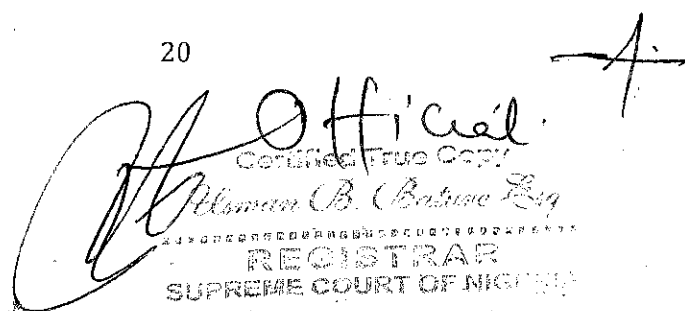 20
Official.
Certified True Copy
Usman B. Bature Esq
REGISTRAR
SUPREME COURT OF